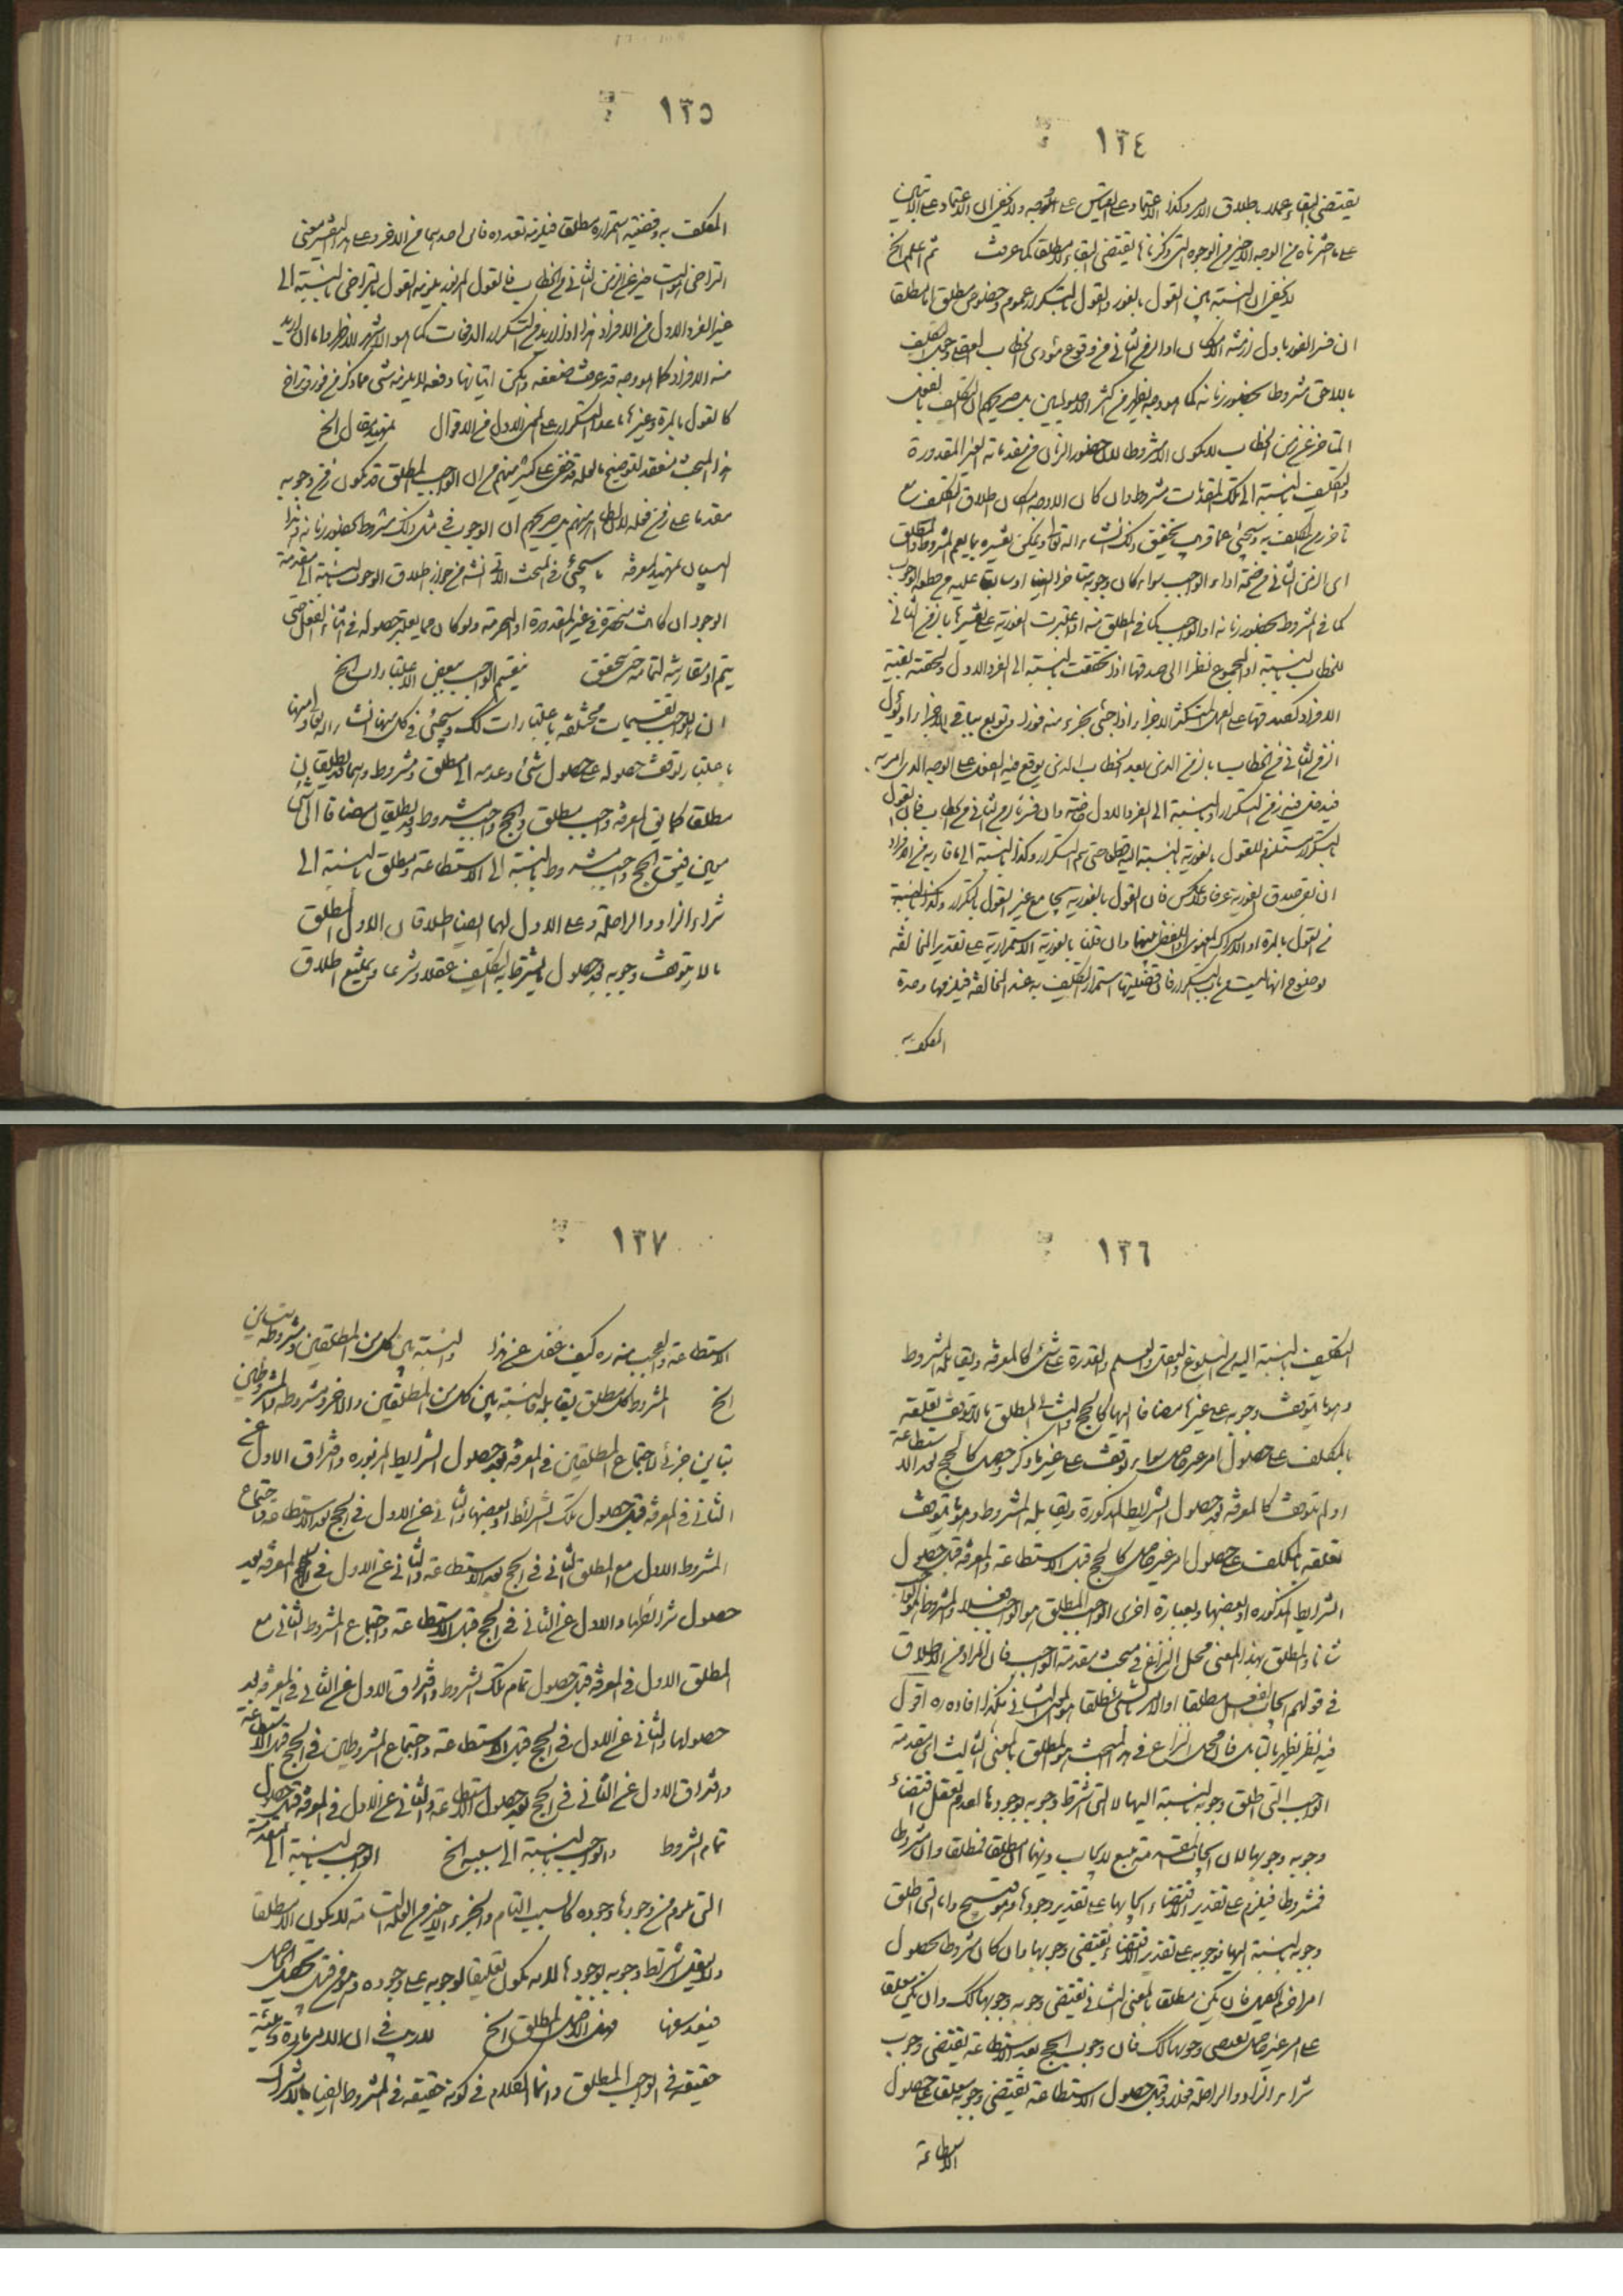 ١٣٤
يقتضى البقاء عملا باطلاق الامر وكذا الاعتماد على القياس على الوجه ولا يخفى ان الاعتماد على الاتيان
على ما اخترناه من الوجه الاخير من الوجوه التى ذكرناها يقتضى البقاء مطلقا كما عرفت ثم اعلم الخ
لا يخفى ان النسبة بين القول بالفور والقول بالتكرار عموم وخصوص مطلق اما مطلقا
ان فسر الفور باول ازمنة الامكان او الزمن الثانى من وقوع مؤدى الخطاب
باللاحق مشروطا بحضور زمانه كما هو وجه يظهر من اكثر الاصوليين بل صريحهم ان التكليف بالفعل
المتاخر عن زمن الخطاب لا يكون الا مشروطا لان حضور الزمان من مقدماته الغير المقدورة
والتكليف بالنسبة الى تلك المقدمات مشروط وان كان الاوجه امكان اطلاق التكليف مع
تاخر زمن المكلف به وسيجئ عما قريب تحقيق ذلك انشاء الله تعالى ويمكن تفسيره بما يعم المشروط والمطلق
اى الزمن الثانى من صحة اداء الواجب سواء كان وجوبه متاخرا ايضا او سابقا عليه
كما فى المشروط بحضور زمانه او الواجب كما فى المطلق منه او اعتبرت الفورية على تفسيرها بالزمن الثانى
للخطاب بالنسبة الى المجموع نظرا الى صدقها اذا تحققت بالنسبة الى الفرد الاول ولحقته بقية
الافراد كصدقها على العمل المتكثر الاجزاء اذا جئ بجزء منه فورا وتوبع بباقى الاجزاء
الزمن الثانى من الخطاب بالزمن الذى بعد الخطاب الذى يوقع فيه الفعل على الوجه الذى امر به
فيدخل فيه زمن التكرار وبالنسبة الى الفرد الاول خاصة وان فسر بالزمن الثانى من الخطاب فان القول
بالتكرار مستلزم للقول بالفورية بالنسبة اليه مطلقا حتى يتم التكرار وكذا بالنسبة الى ما قاربه من الافراد
ان بقى صدق الفورية عرفا ولا عكس فان القول بالفورية يجامع غير القول بالتكرار وكذا بالنسبة
من القول بالمرة او الاشتراك المعنوى او اللفظى بينهما وان قلنا بالفورية الاستمرارية على تقدير المخالفة
لوضوح انها ليست من باب التكرار فان قضيتها استمرار التكليف به عند المخالفة فيلزمها وحدة
المكلف به
١٣٥
المكلف به وقضيته استمراره مطلقا فيلزمه تعدده فاين احدهما من الاخر وعلى هذا التفسير معنى
التراخى التاخير عن الزمن الثانى من الخطاب فالقول المزبور يلزمه القول بالتراخى بالنسبة الى
غير الفرد الاول من الافراد هذا اذا اريد من التكرار الدفعات كما هو الاشهر الاظهر واما ان اريد
منه الافراد كما هو وجه قد عرفت ضعفه وامكن اتيانها دفعة لا يلزمه شئ مما ذكر من فور وتراخ
كالقول بالمرة وغيرها ما عدا التكرار على المعنى الاول من الاقوال تمهيد مقال الخ
هذا المبحث منعقد لتوضيح ما لعله قد خفى على كثير منهم من ان الواجب المطلق قد يكون زمن وجوبه
مقدما على زمن فعله لان ظاهر منهم بل صريحهم ان الوجوب فى مثل ذلك مشروط بحضور زمانه وهذا
البيان تمهيد لمعرفة ما سيجئ فى المبحث الاتى انشاء من جواز اطلاق الوجوب بالنسبة الى مقدمة
الوجود ان كانت منحصرة فى غير المقدورة او المحرمة ولو كان مما يعتبر حصوله فى اثناء الفعل حتى
يتم او مقارنته لتمامه حتى يتحقق ينقسم الواجب ببعض الاعتبارات الخ
ان للواجب تقسيمات مختلفة باعتبارات كك وسيجئ فى كل منها انشاء الله تعالى ومنها
باعتبار توقف حصوله على حصول شئ وعدمه الى مطلق ومشروط وهما قد يطلقان
مطلقا كما يق المعرفة واجب مطلق والحج واجب مشروط وقد يطلقان مضافا الى شئ
معين فيق الحج واجب مشروط بالنسبة الى الاستطاعة ومطلق بالنسبة الى
شراء الزاد والراحلة وعلى الاول لهما ايضا اطلاقان الاول المطلق
ما لا يتوقف وجوبه بعد حصول ما يشترط به التكليف عقلا وشرعا ويمتنع اطلاق
١٣٦
التكليف بالنسبة اليه من البلوغ والعقل والعلم والقدرة على شئ كالمعرفة ويقابله المشروط
وهو ما يتوقف وجوبه على غيرها مضافا اليها كالحج والثانى المطلق ما لا يتوقف تعلقه
بالمكلف على حصول امر غير حاصل سواء توقف على غير ما ذكر وحصل كالحج بعد الاستطاعة
او لم يتوقف كالمعرفة بعد حصول الشرايط المذكورة ويقابله المشروط وهو ما يتوقف
تعلقه بالمكلف على حصول امر غير حاصل كالحج قبل الاستطاعة والمعرفة قبل حصول
الشرايط المذكورة او بعضها وبعبارة اخرى الواجب المطلق هو الواجب فعلا والمشروط هو الواجب
شانا والمطلق بهذا المعنى محل النزاع فى مبحث مقدمة الواجب فان المراد من الاطلاق
فى قولهم ايجاب الفعل مطلقا او الامر بالشئ مطلقا هو المعنى الثانى هكذا افاده ره اقول
فيه نظر يظهر بالتامل فان محل النزاع فى هذا المبحث هو المطلق بالمعنى الثالث اى مقدمة
الواجب التى اطلق وجوبه بالنسبة اليها لا التى اشترط وجوبه بوجودها لعدم تعقل اقتضاء
وجوبه وجوبها لان ايجاب المقدمة تبع لايجاب ذيها ان مطلقا فمطلقا وان مشروطا
فمشروطا فيلزم على تقدير الاقتضاء ايجابها على تقدير وجودها وهو قبيح واما التى اطلق
وجوبه بالنسبة اليها فوجوبه على تقدير الاقتضاء يقتضى وجوبها وان كان مشروطا بحصول
امر اخر بالفعل فان يكن مطلقا بالمعنى الثانى يقتضى وجوبه وجوبها كك وان يكن معلقا
على امر غير حاصل يقتضى وجوبها كك فان وجوب الحج بعد الاستطاعة يقتضى وجوب
شراء الزاد والراحلة فعلا وقبل حصول الاستطاعة يقتضى وجوبه معلقا على حصول
الاستطاعة
١٣٧
الاستطاعة والعجب منه ره كيف غفل عن هذا والنسبة بين كل من المطلقين ومشروطه تباين
الخ المشروط لكل مطلق يقابله فالنسبة بين كل من المطلقين والاخر ومشروطه والمشروطين
تباين جزئى لاجتماع المطلقين فى المعرفة بعد حصول الشرايط المزبورة وافتراق الاول عن
الثانى فى المعرفة قبل حصول تلك الشرائط او بعضها والثانى عن الاول فى الحج بعد الاستطاعة واجتماع
المشروط الاول مع المطلق الثانى فى الحج بعد الاستطاعة والثانى عن الاول فى المعرفة بعد
حصول شرائطها والاول عن الثانى فى الحج قبل الاستطاعة واجتماع المشروط الثانى مع
المطلق الاول فى المعرفة قبل حصول تمام تلك الشروط وافتراق الاول عن الثانى فى المعرفة بعد
حصولها والثانى عن الاول فى الحج قبل الاستطاعة واجتماع المشروطين فى الحج قبل الاستطاعة
وافتراق الاول عن الثانى فى الحج بعد حصول الاستطاعة والثانى عن الاول فى المعرفة قبل حصول
تمام الشروط والواجب بالنسبة الى سببه الخ الواجب بالنسبة الى المقدمة
التى يلزم من وجودها وجوده كالسبب التام والجزء الاخير من العلة التامة لا يكون الا مطلقا
ولا يعقل اشتراط وجوبه بوجودها لانه يكون تعليقا لوجوبه على وجوده وهو من قبيل تحصيل الحاصل
فيفيد سفها وهل الاصل المطلق الخ لا ريب فى ان الامر مادة وهيئة
حقيقة فى الواجب المطلق وانما الكلام فى كونه حقيقة فى المشروط ايضا بالاشتراك